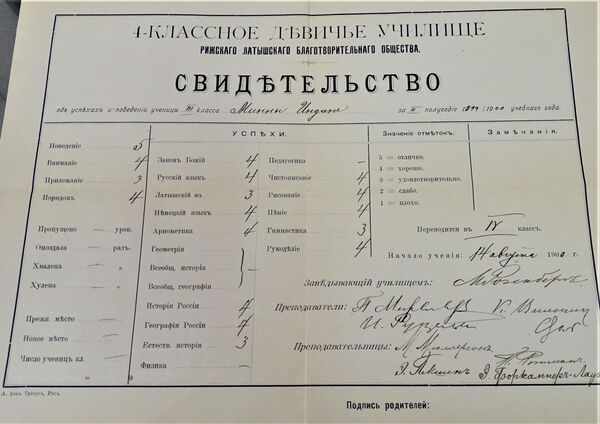 4-КЛАССНОЕ ДѢВИЧЬЕ УЧИЛИЩЕ
РИЖСКАГО ЛАТЫШСКАГО БЛАГОТВОРИТЕЛЬНАГО ОБЩЕСТВА.
СВИДѢТЕЛЬСТВО
объ успѣхахъ и поведеніи ученицы III класса Минни за II полугодіе 1899/1900 учебнаго года.
Поведеніе 5
Вниманіе 4
Прилежаніе 3
Порядокъ 4
Пропущено — урок.
Опоздала — разъ.
Хвалена — "
Хулена — "
Прежн. мѣсто —
Новое мѣсто —
Число ученицъ кл. —
УСПѢХИ.
Законъ Божій 4
Русскій языкъ 4
Латышскій яз. 3
Нѣмецкій языкъ 4
Ариѳметика 4
Геометрія
Всеобщ. исторія —
Всеобщ. географія
Исторія Россіи 4
Географія Россіи 4
Естеств. исторія 3
Физика —
Педагогика —
Чистописаніе 4
Рисованіе 4
Пѣніе 4
Гимнастика 3
Рукодѣліе 4
Значеніе отмѣтокъ.
5 = отлично.
4 = хорошо.
3 = удовлетворительно.
2 = слабо.
1 = плохо.
Замѣчанія.
Переводится въ IV классъ.
Начало ученія: 14 августа 1900 г.
Завѣдывающій училищемъ: М. Розенбергъ
Преподаватели:
Преподавательницы:
А. фонъ Гротусъ, Рига.
Подпись родителей: